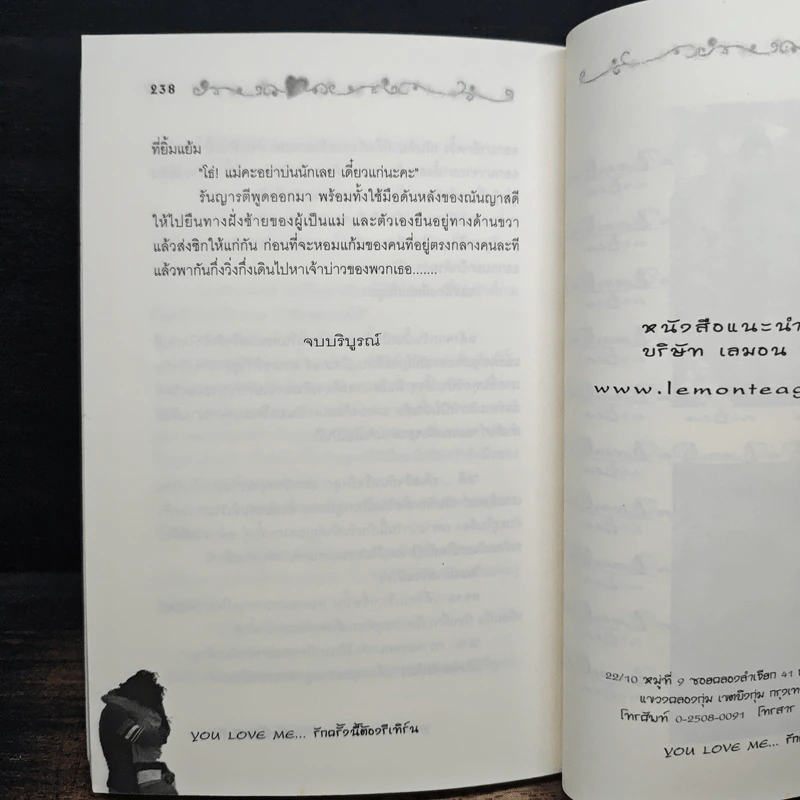 238
ที่ยิ้มแย้ม
"โธ่! แม่คะอย่าบ่นนักเลย เดี๋ยวแก่นะคะ"
รันญารตีพูดออกมา พร้อมทั้งใช้มือดันหลังของณันญาสดี
ให้ไปยืนทางฝั่งซ้ายของผู้เป็นแม่ และตัวเองยืนอยู่ทางด้านขวา
แล้วส่งซิกให้แก่กัน ก่อนที่จะหอมแก้มของคนที่อยู่ตรงกลางคนละที
แล้วพากันกึ่งวิ่งกึ่งเดินไปหาเจ้าบ่าวของพวกเธอ.......
จบบริบูรณ์
YOU LOVE ME... รักครั้งนี้ต้องรีเทิร์น
หนังสือแนะนำ
บริษัท เลมอน
www.lemonteag
22/10 หมู่ที่ 9 ซอยคลองลำเจียก 41
แขวงคลองกุ่ม เขตบึงกุ่ม กรุงเท
โทรศัพท์ 0-2508-0091 โทรสาร
YOU LOVE ME... รัก